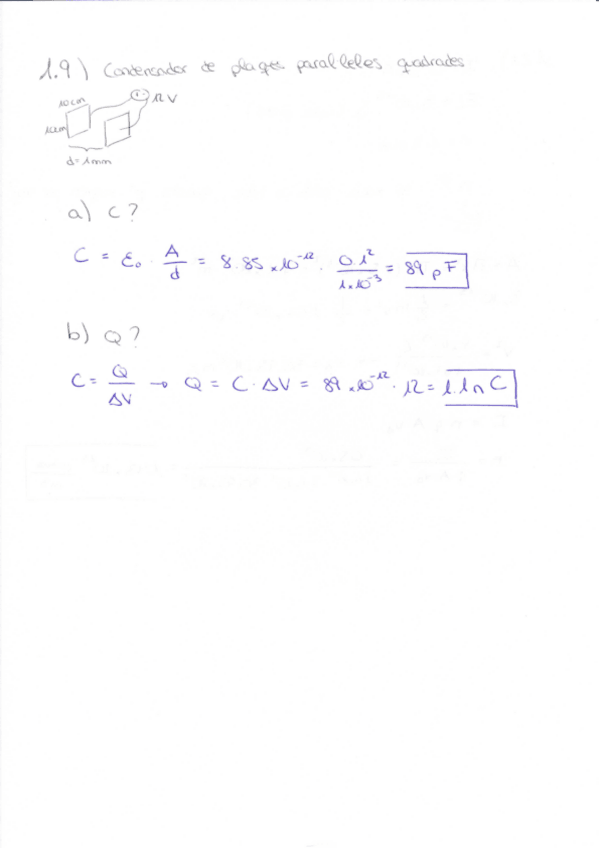 1.9) Condensador de plaques paral·leles quadrades
10cm
12V
10cm
d=1mm
a) C?
C = ε₀ · A/d = 8.85×10⁻¹² · 0.1²/1×10⁻³ = 89 pF
b) Q?
C = Q/ΔV → Q = C·ΔV = 89×10⁻¹² · 12 = 1.1nC